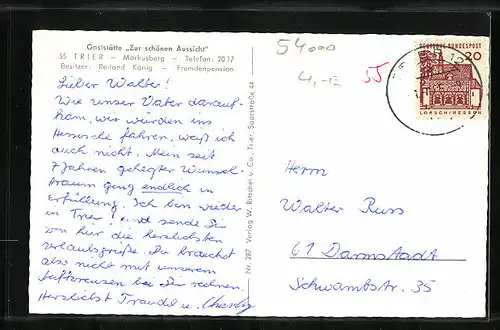 Gaststätte „Zur schönen Aussicht"
55 TRIER – Markusberg – Telefon: 2017
Besitzer: Reiland König – Fremdenpension
Lieber Walter!
Wie unser Vater darauf
kam, wir würden ins
Hessische fahren, weiß ich
auch nicht. Mein seit
7 Jahren gehegter Wunsch-
traum ging endlich in
Erfüllung. Ich bin wieder
in Trier! und sende Dir
von hier die herzlichsten
Urlaubsgrüße. Du brauchst
also nicht mit unserem
bei Dir rechnen.
Herzlichst Traudel u.
Nr. 287 Verlag W. Ritschel u. Co., Trier, Saarstraße 44
54000
4,-E
55
DEUTSCHE BUNDESPOST
20
LORSCH/HESSEN
Herrn
Walter Russ
61 Darmstadt
Schwambstr. 35